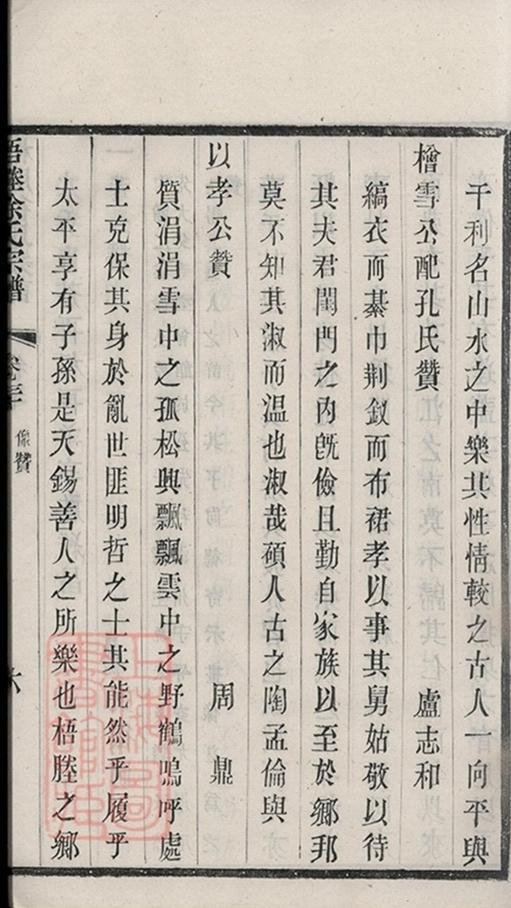 干利名山水之中樂其性情較之古人一向平與
檜雪公配孔氏贊 盧志和
縞衣而綦巾荆釵而布裙孝以事其舅姑敬以待
其夫君閨門之內旣儉且勤自家族以至於鄉邦
莫不知其淑而温也淑哉碩人古之陶孟倫與
以孝公贊 周鼎
質涓涓雪中之孤松興飄飄雲中之野鶴嗚呼處
士克保其身於亂世匪明哲之士其能然乎履乎
太平享有子孫是天錫善人之所樂也梧塍之鄉
梧塍徐氏宗譜 像贊 六